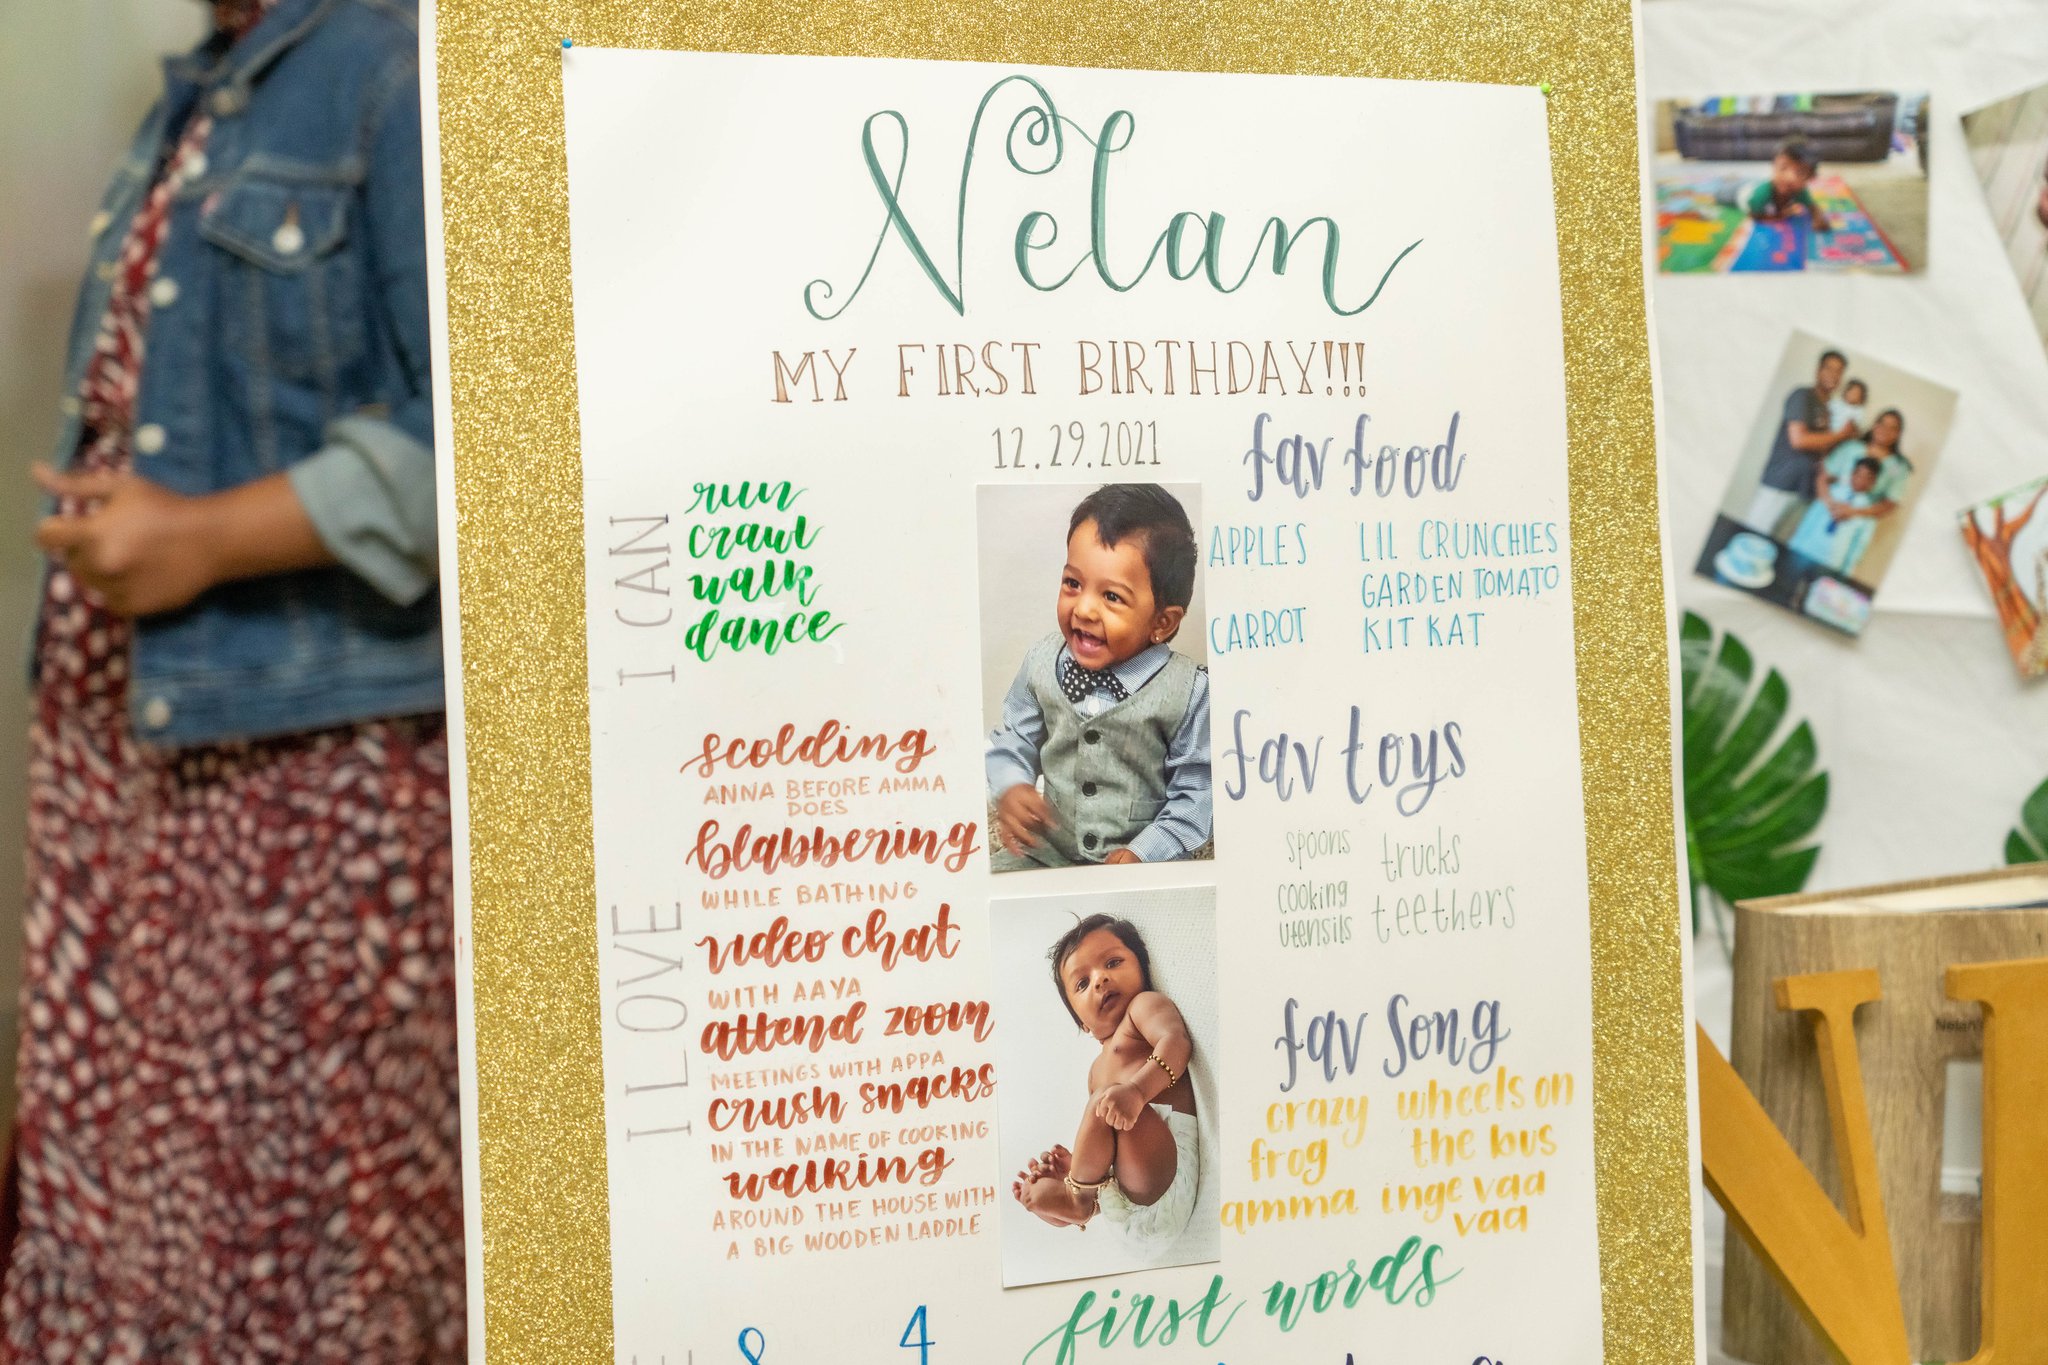 Nelan
MY FIRST BIRTHDAY!!!
12.29.2021
I CAN
run
crawl
walk
dance
I LOVE
scolding
ANNA BEFORE AMMA
DOES
blabbering
WHILE BATHING
video chat
WITH AAYA
attend zoom
MEETINGS WITH APPA
crush snacks
IN THE NAME OF COOKING
walking
AROUND THE HOUSE WITH
A BIG WOODEN LADDLE
8 4
fav food
APPLES
CARROT
LIL CRUNCHIES
GARDEN TOMATO
KIT KAT
fav toys
spoons
cooking
utensils
trucks
teethers
fav song
crazy
frog
wheels on
the bus
amma inge vaa
vaa
first words
Nelan's
N